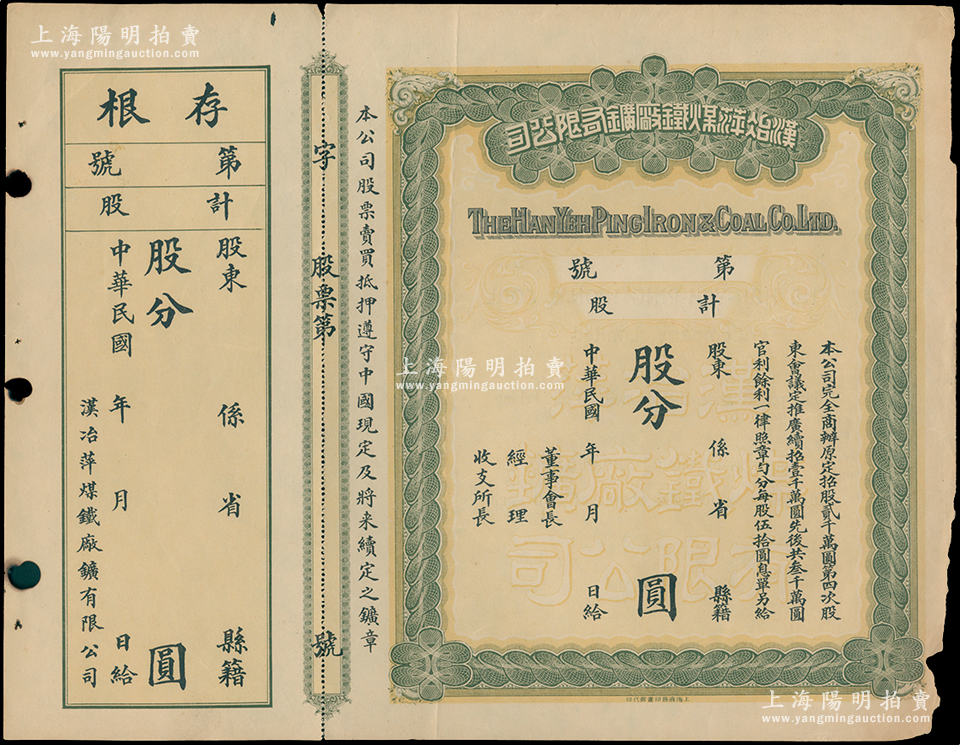 漢冶萍煤鐵廠鑛有限公司
THE HAN YEH PING IRON & COAL CO. LTD.
第 號
計 股
本公司完全商辦原定招股貳千萬圓第四次股
東會議定推廣續招壹千萬圓先後共叁千萬圓
官利餘利一律照章勻分每股伍拾圓息單另給
股東 係 省 縣籍
股分 圓
中華民國 年 月 日給
董事會長
經理
收支所長
漢冶萍
煤鐵廠鑛
有限公司
上海商務印書館代印
本公司股票賣買抵押遵守中國現定及將來續定之鑛章
字 股票第 號
存根
第 號
計 股
股東 係 省 縣籍
股分 圓
中華民國 年 月 日給
漢冶萍煤鐵廠鑛有限公司
上海陽明拍賣
www.yangmingauction.com
上海陽明拍賣
www.yangmingauction.com
上海陽明拍賣
www.yangmingauction.com